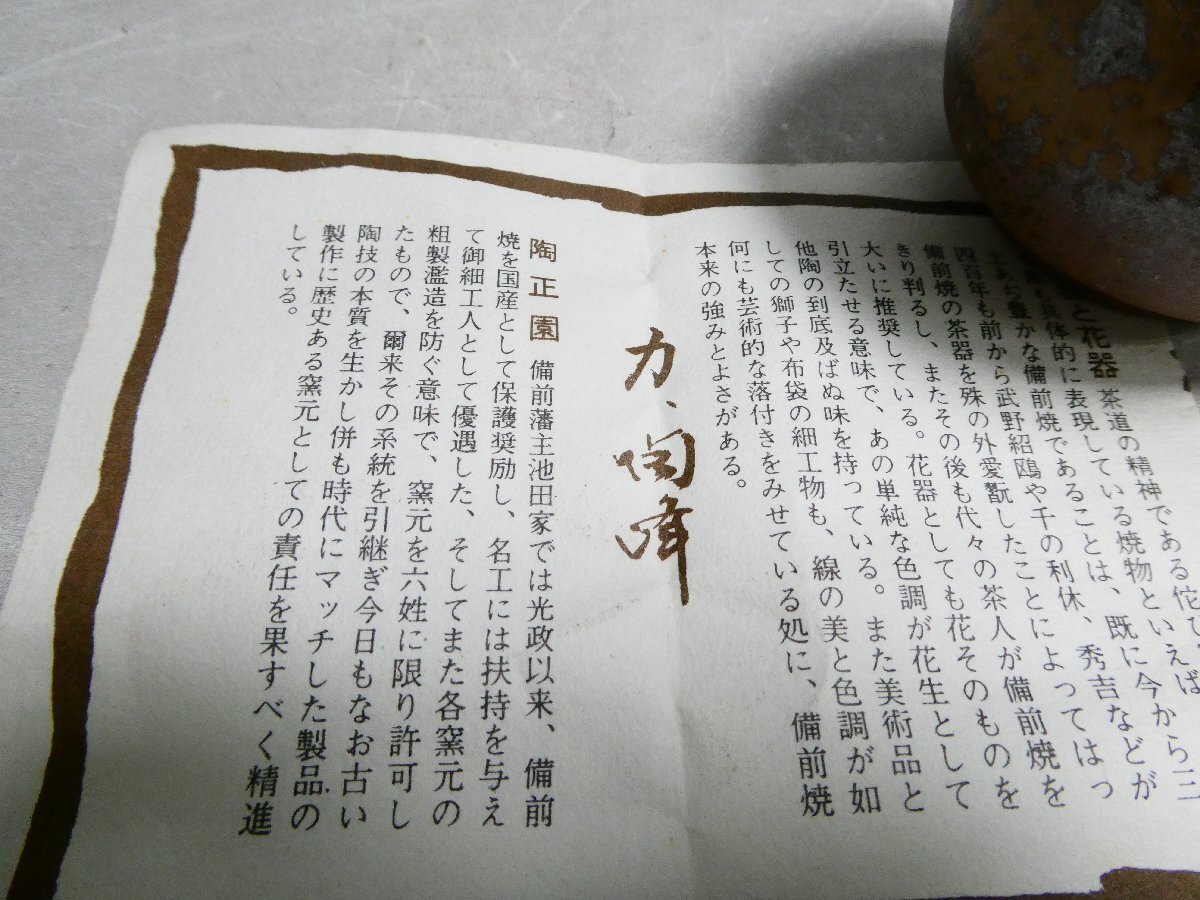 と花器 茶道の精神である侘び
も具体的に表現している焼物といえば
豊かな備前焼であることは、既に今から三
四百年も前から武野紹鴎や千の利休、秀吉などが
備前焼の茶器を殊の外愛翫したことによってはっ
きり判るし、またその後も代々の茶人が備前焼を
大いに推奨している。花器としても花そのものを
引立たせる意味で、あの単純な色調が花生として
他陶の到底及ばぬ味を持っている。また美術品と
しての獅子や布袋の細工物も、線の美と色調が如
何にも芸術的な落付きをみせている処に、備前焼
本来の強みとよさがある。
陶峰
陶正園 備前藩主池田家では光政以来、備前
焼を国産として保護奨励し、名工には扶持を与え
て御細工人として優遇した、そしてまた各窯元の
粗製濫造を防ぐ意味で、窯元を六姓に限り許可し
たもので、爾来その系統を引継ぎ今日もなお古い
陶技の本質を生かし併も時代にマッチした製品の
製作に歴史ある窯元としての責任を果すべく精進
している。